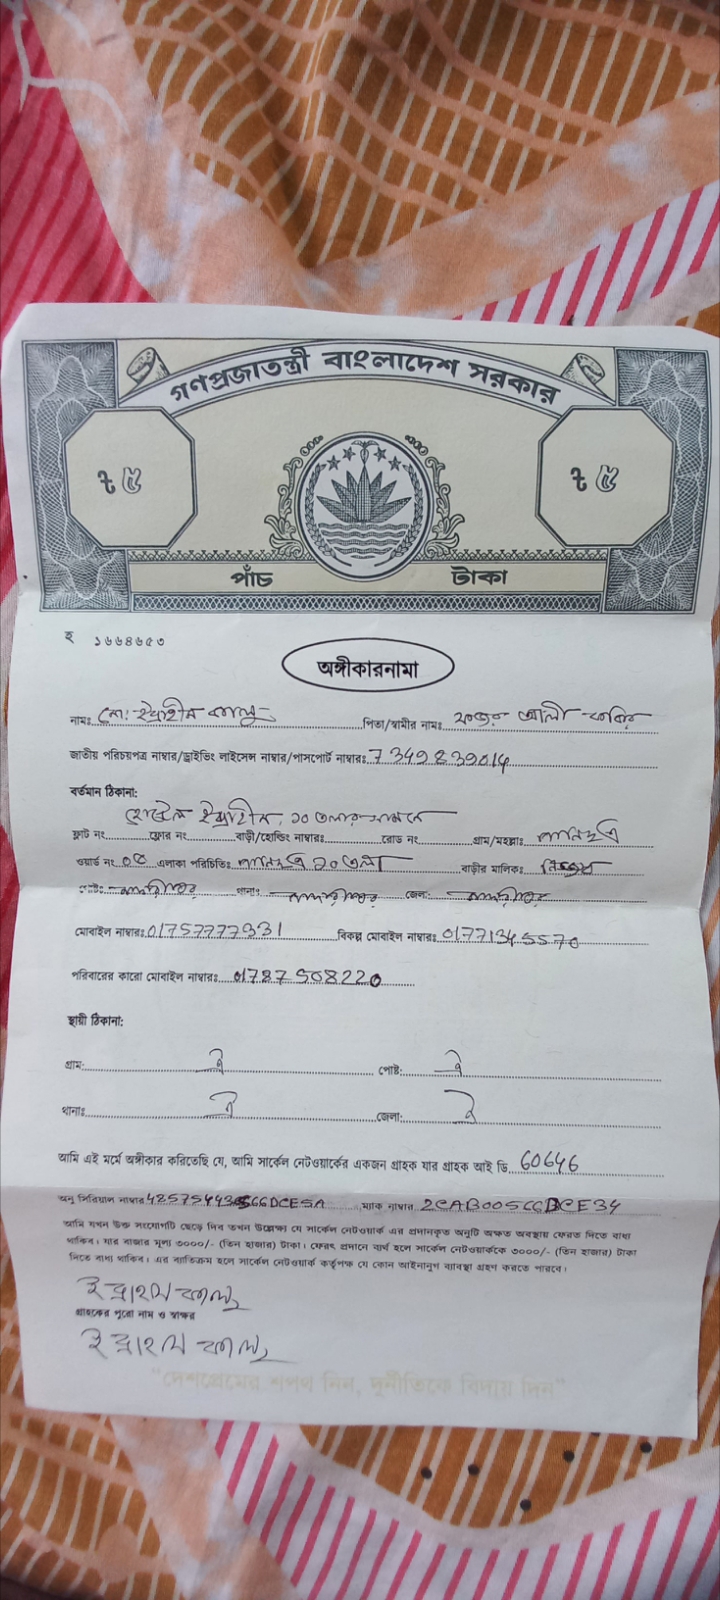 গণপ্রজাতন্ত্রী বাংলাদেশ সরকার
৳ ৫ ৳ ৫
পাঁচ টাকা
হ ১৬৬৪৬৫৩
অঙ্গীকারনামা
নামঃ মো: ইব্রাহীম কালু পিতা/স্বামীর নামঃ আলী
জাতীয় পরিচয়পত্র নাম্বার/ড্রাইভিং লাইসেন্স নাম্বার/পাসপোর্ট নাম্বারঃ 7349839014
বর্তমান ঠিকানা:
হোটেল ইব্রাহীম, ১০ তলার সামনে
ফ্লাট নং ফ্লোর নং বাড়ী/হোল্ডিং নাম্বারঃ রোড নং গ্রাম/মহল্লাঃ
ওয়ার্ড নং এলাকা পরিচিতিঃ ১০ তলা বাড়ীর মালিক: নিজস্ব
পোষ্টঃ থানাঃ জেলা:
মোবাইল নাম্বারঃ 01757777331 বিকল্প মোবাইল নাম্বারঃ 01771345570
পরিবারের কারো মোবাইল নাম্বারঃ 01787508220
স্থায়ী ঠিকানা:
গ্রাম: ঐ পোষ্ট: ঐ
থানাঃ ঐ জেলা: ঐ
আমি এই মর্মে অঙ্গীকার করিতেছি যে, আমি সার্কেল নেটওয়ার্কের একজন গ্রাহক যার গ্রাহক আই ডি 60646
অনু সিরিয়াল নাম্বার ম্যাক নাম্বার
আমি যখন উক্ত সংযোগটি ছেড়ে দিব তখন উল্লেক্ষ্য যে সার্কেল নেটওয়ার্ক এর প্রদানকৃত অনুটি অক্ষত অবস্থায় ফেরত দিতে বাধ্য
থাকিব। যার বাজার মূল্য ৩০০০/- (তিন হাজার) টাকা। ফেরৎ প্রদানে ব্যর্থ হলে সার্কেল নেটওয়ার্ককে ৩০০০/- (তিন হাজার) টাকা
দিতে বাধ্য থাকিব। এর ব্যতিক্রম হলে সার্কেল নেটওয়ার্ক কর্তৃপক্ষ যে কোন আইনানুগ ব্যবস্থা গ্রহণ করতে পারবে।
ইব্রাহীম কালু
গ্রাহকের পুরো নাম ও স্বাক্ষর
ইব্রাহীম কালু
"দেশপ্রেমের শপথ নিন, দুর্নীতিকে বিদায় দিন"